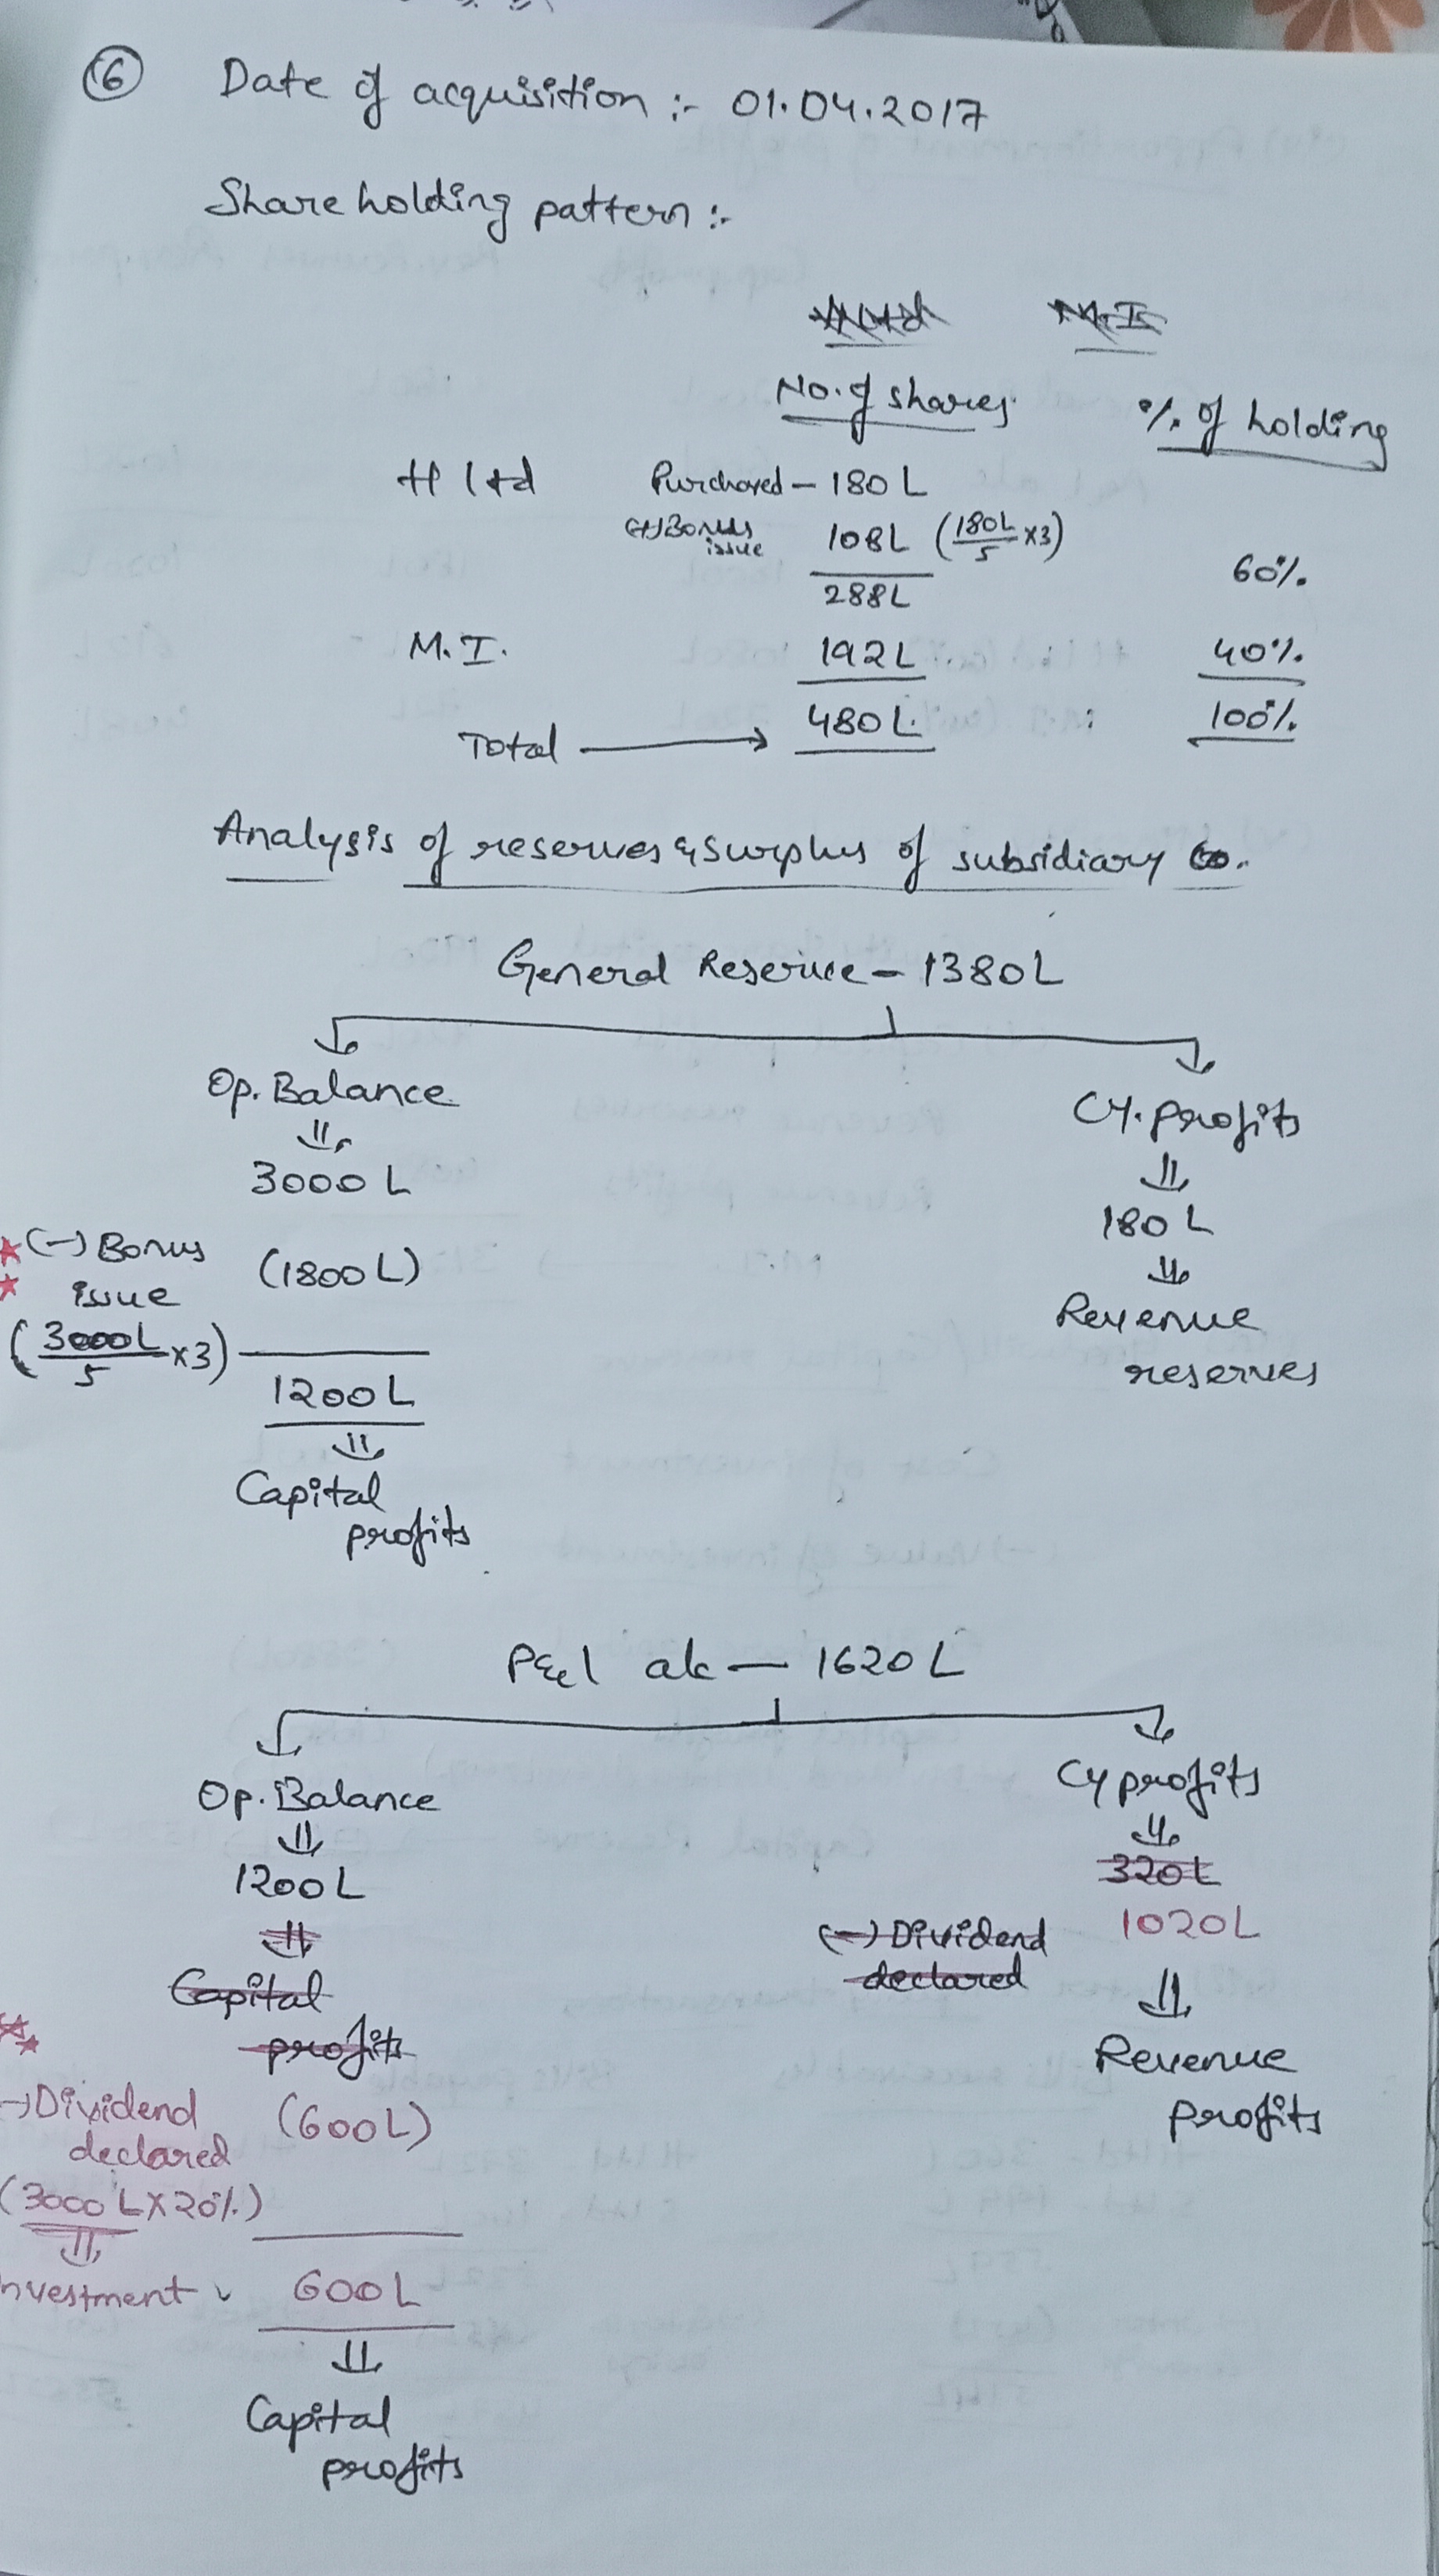 6 Date of acquisition :- 01.04.2017
Share holding pattern :-
M.I
No. of shares % of holding
H ltd Purchased - 180 L
(+) Bonus issue 108L (180L/5 x3) 60%
288L
M. I. 192L 40%
Total → 480L 100%
Analysis of reserves & surplus of subsidiary Co.
General Reserve - 1380L
Op. Balance CY. profits
3000 L 180 L
(-) Bonus issue (1800L) Revenue reserves
(3000L/5 x3)
1200L
Capital profits
P&l a/c - 1620 L
Op. Balance CY profits
1200L 320L
(-) Dividend declared 1020L
Capital profits Revenue profits
-) Dividend declared (600L)
(3000 L x 20%)
nvestment 600L
Capital profits